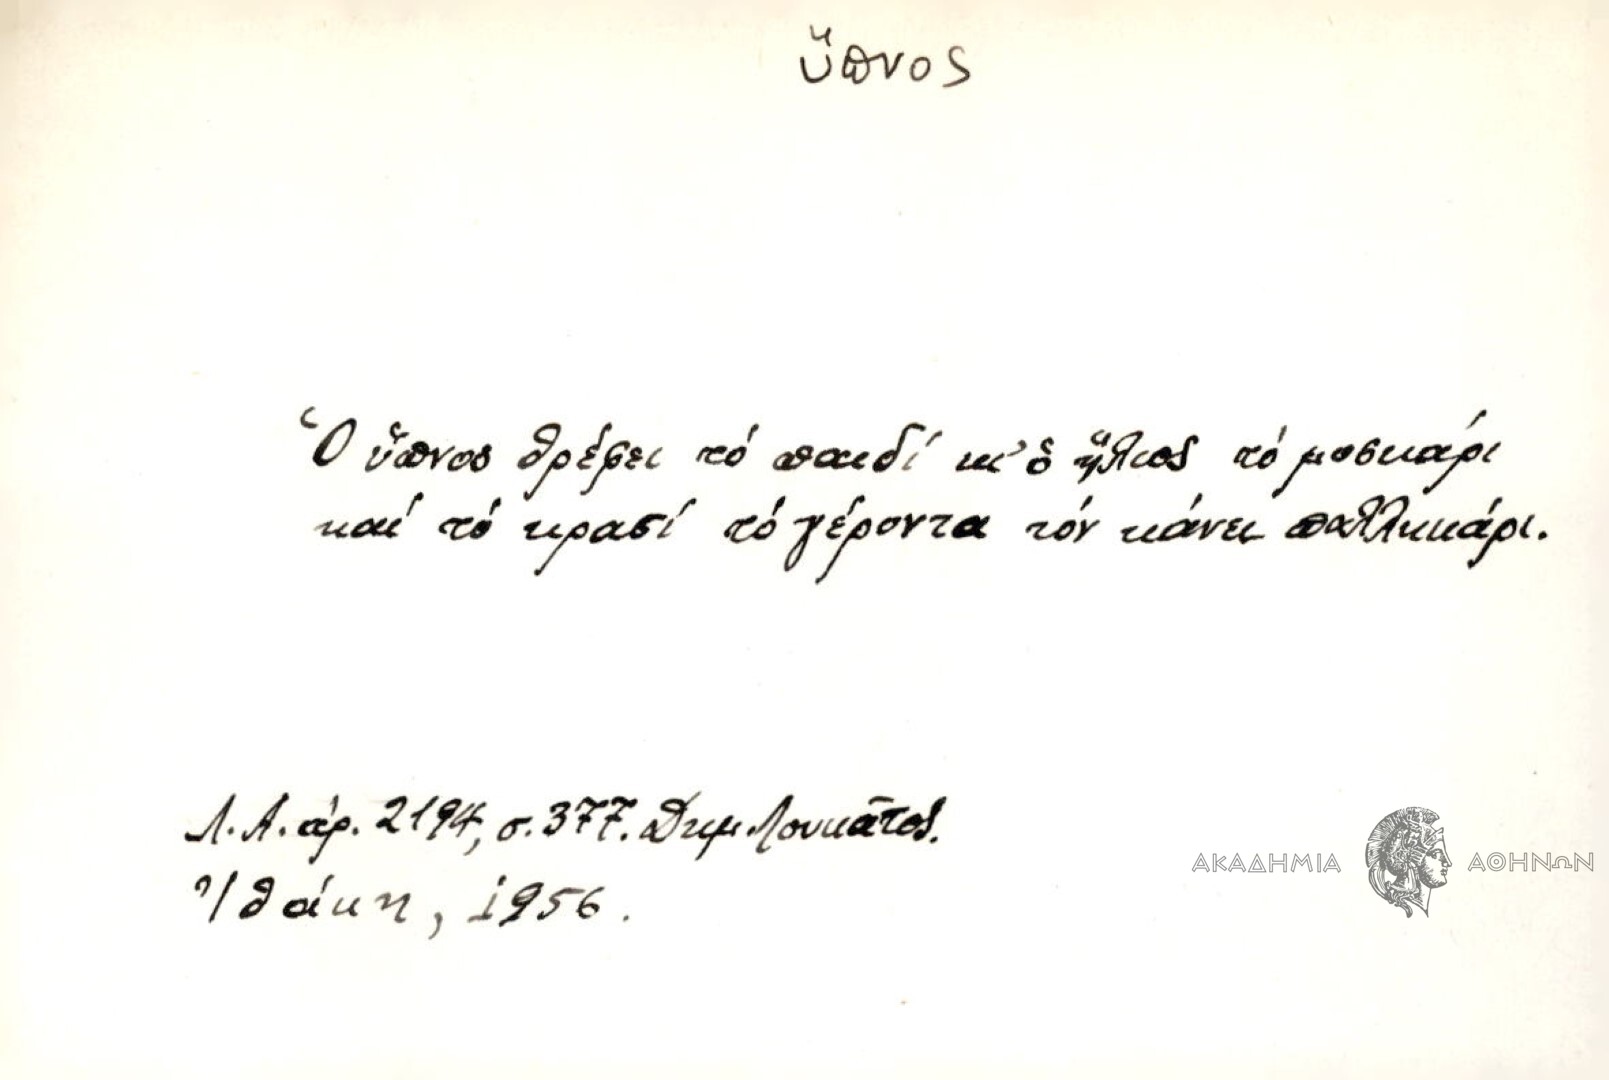 ὕπνος
Ὁ ὕπνος θρέφει τό παιδί κι' ὁ ἥλιος τό μοσκάρι
καί τό κρασί τό γέροντα τόν κάνει παλληκάρι.
Λ.Α. ἀρ. 2194, σ. 377. Δημ Λουκᾶτος.
Ἰθάκη, 1956.
ΑΚΑΔΗΜΙΑ ΑΘΗΝΩΝ